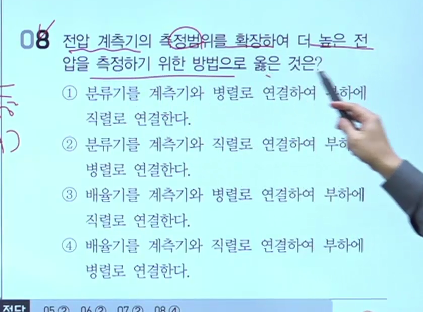 08 전압 계측기의 측정범위를 확장하여 더 높은 전
압을 측정하기 위한 방법으로 옳은 것은?
① 분류기를 계측기와 병렬로 연결하여 부하에
직렬로 연결한다.
② 분류기를 계측기와 직렬로 연결하여
병렬로 연결한다.
③ 배율기를 계측기와 병렬로 연결하여 부하에
직렬로 연결한다.
④ 배율기를 계측기와 직렬로 연결하여 부하에
병렬로 연결한다.
정답 05② 06② 07② 08④